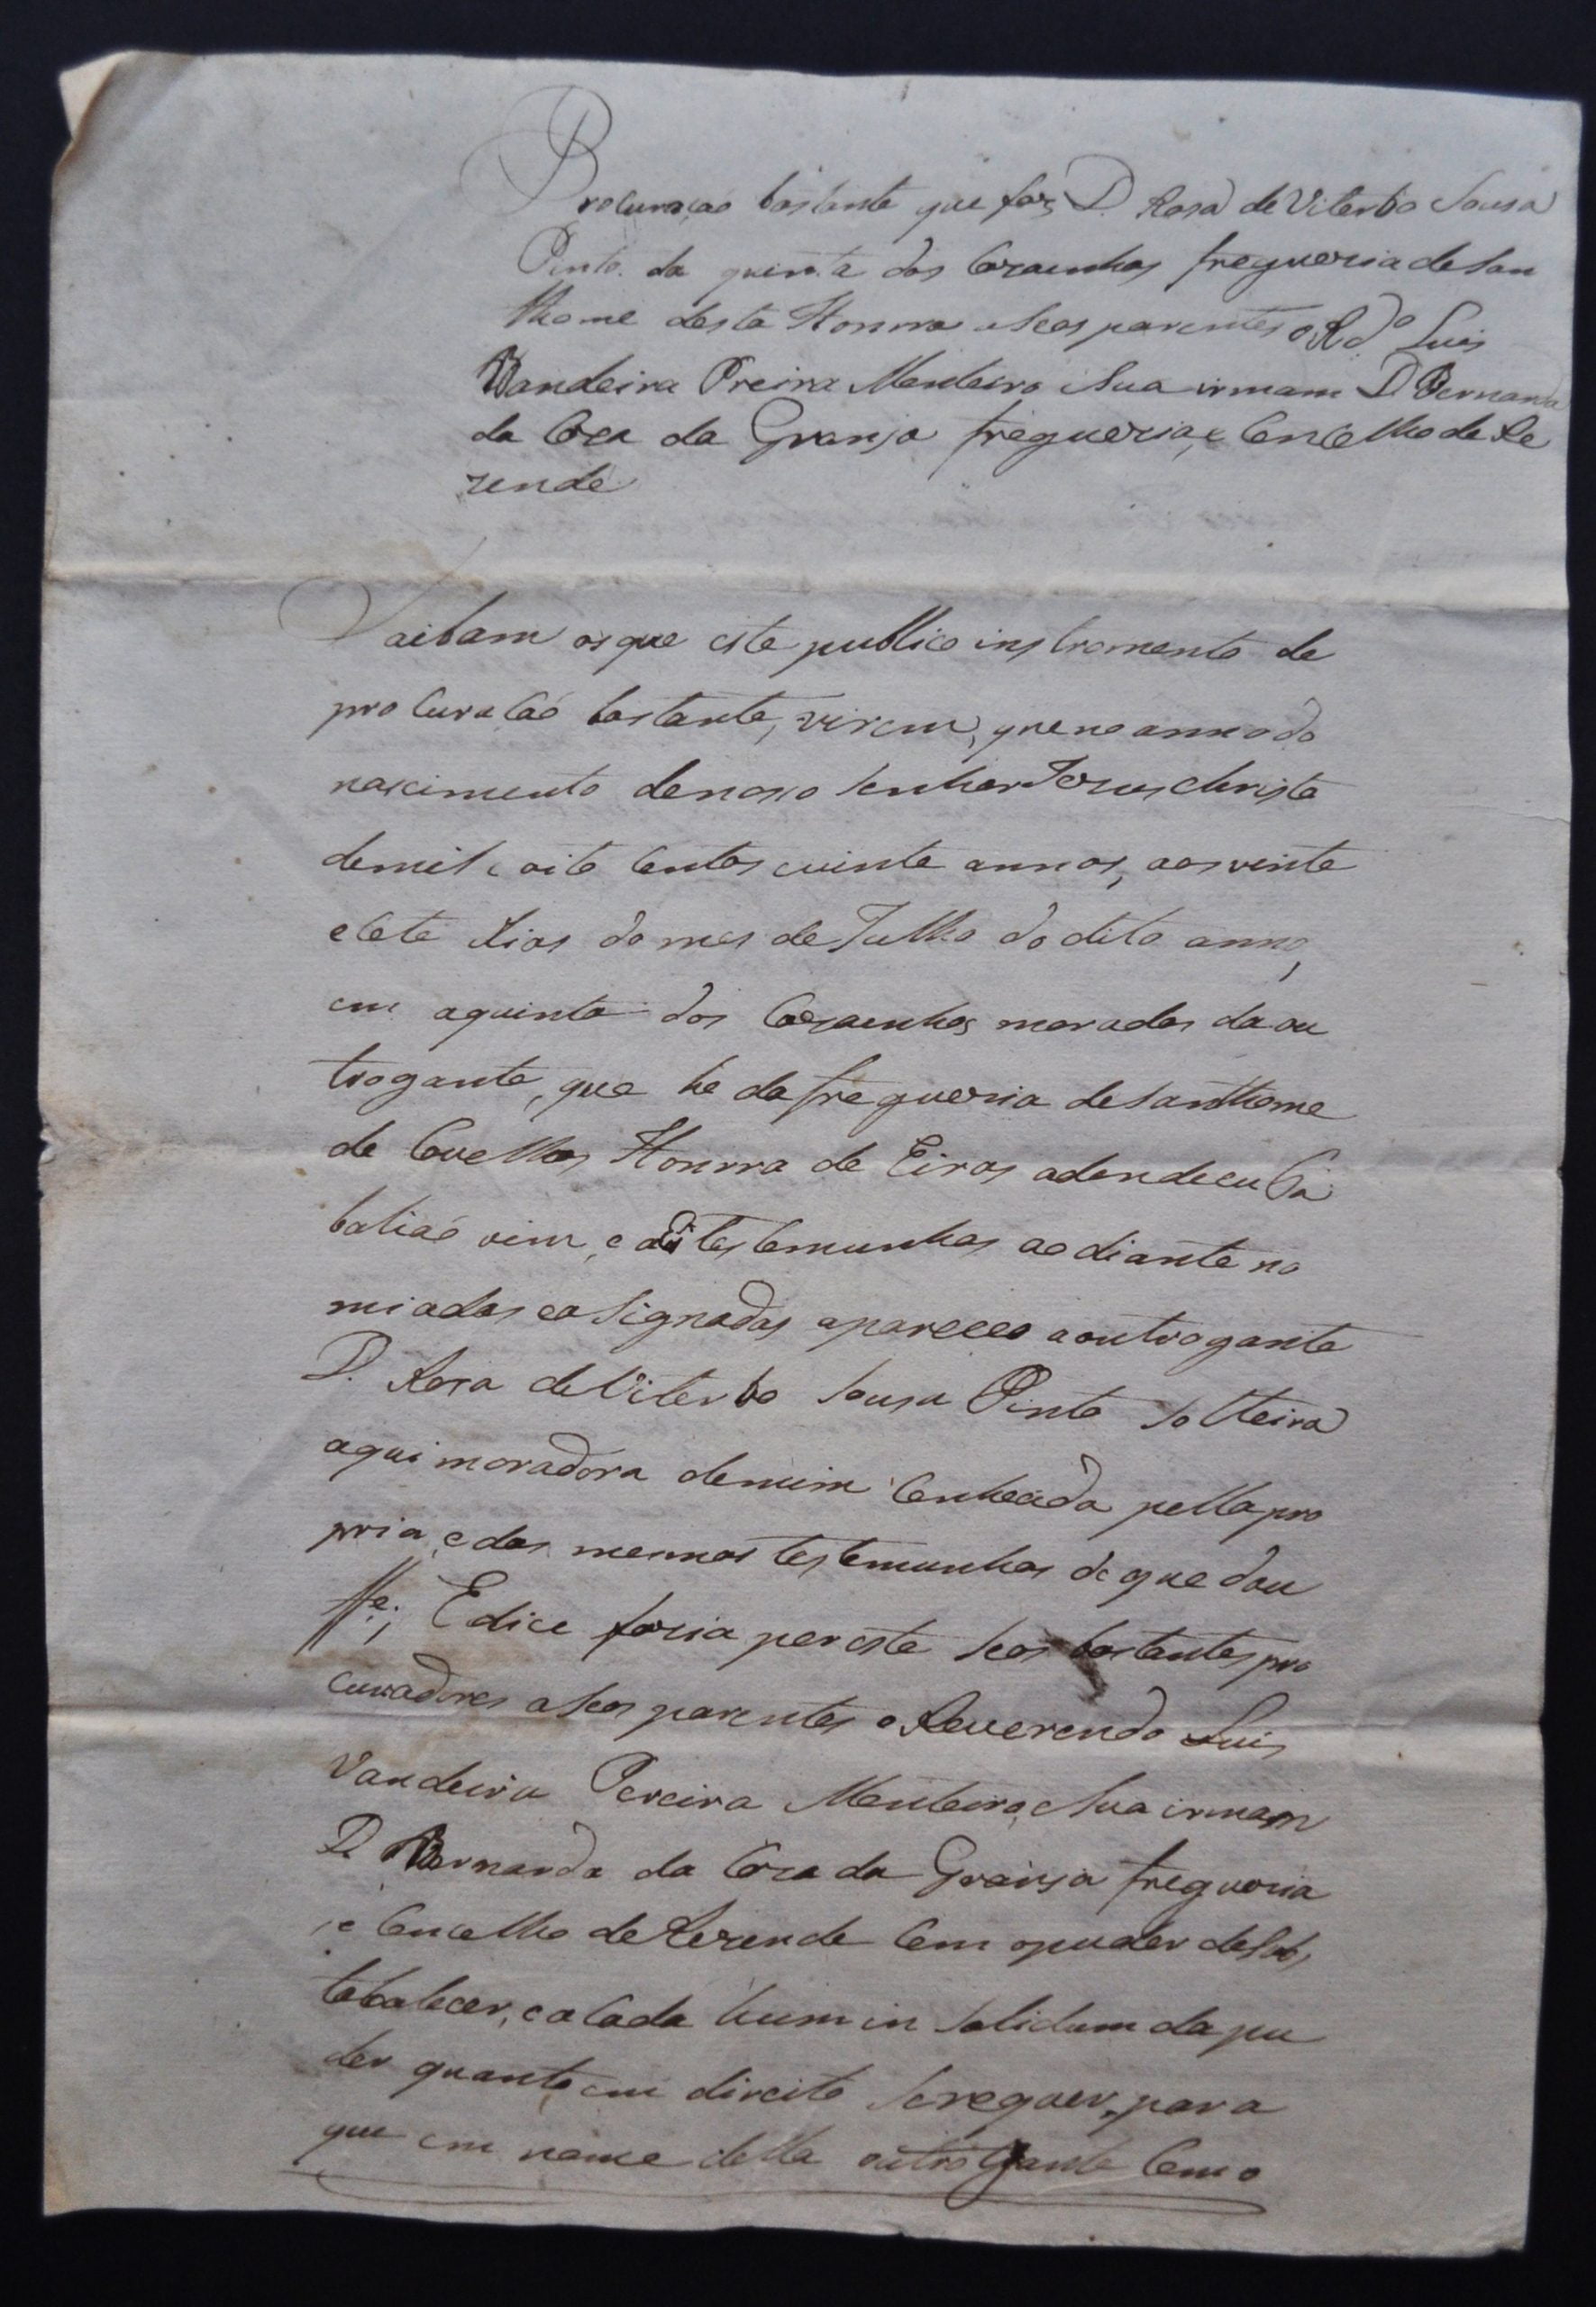 Procuração bastante que faz D. Rosa de Viterbo Sousa
Pinto da quinta dos Cazainhos fregueria de San
thome desta Honrra a Seos parentes o Rdo Luis
Bandeira Preira Monteiro e Sua irmam D. Bernarda
da Caza da Granja fregueria, e Concelho de Re
zende
Saibam os que este publico instromento de
procuração bastante, virem, que no anno do
nascimento de noso Senhor Jezus Christo
de mil e oito Centos e vinte annos, aos vinte
e Cete dias do mes de Julho do dito anno,
em a quinta dos Cazainhos moradas da ou
trogante, que he da fregueria de Santhome
de Covellas Honrra de Eiras adonde eu Ta
baliaõ vim, e as testemunhas ao diante no
miadas e a Signadas apareceo a outrogante
D. Rosa de Viterbo Sousa Pinto Solteira
aqui moradora de mim Conheada pella pro
pria, e das mesmas testemunhas de que dou
ffe; E dice fazia por este Seos bastantes pro
curadores a Seos parentes o Reverendo Luis
Vandeira Pereira Monteiro, e Sua irmam
D. Bernarda da Caza da Granja fregueria
e Concelho de Rezende Com o puder de Sobs
tabalecer, e a Cada hum in Solidum da pu
der quanto em direito Se reguer, para
que em nome della outrogante Como